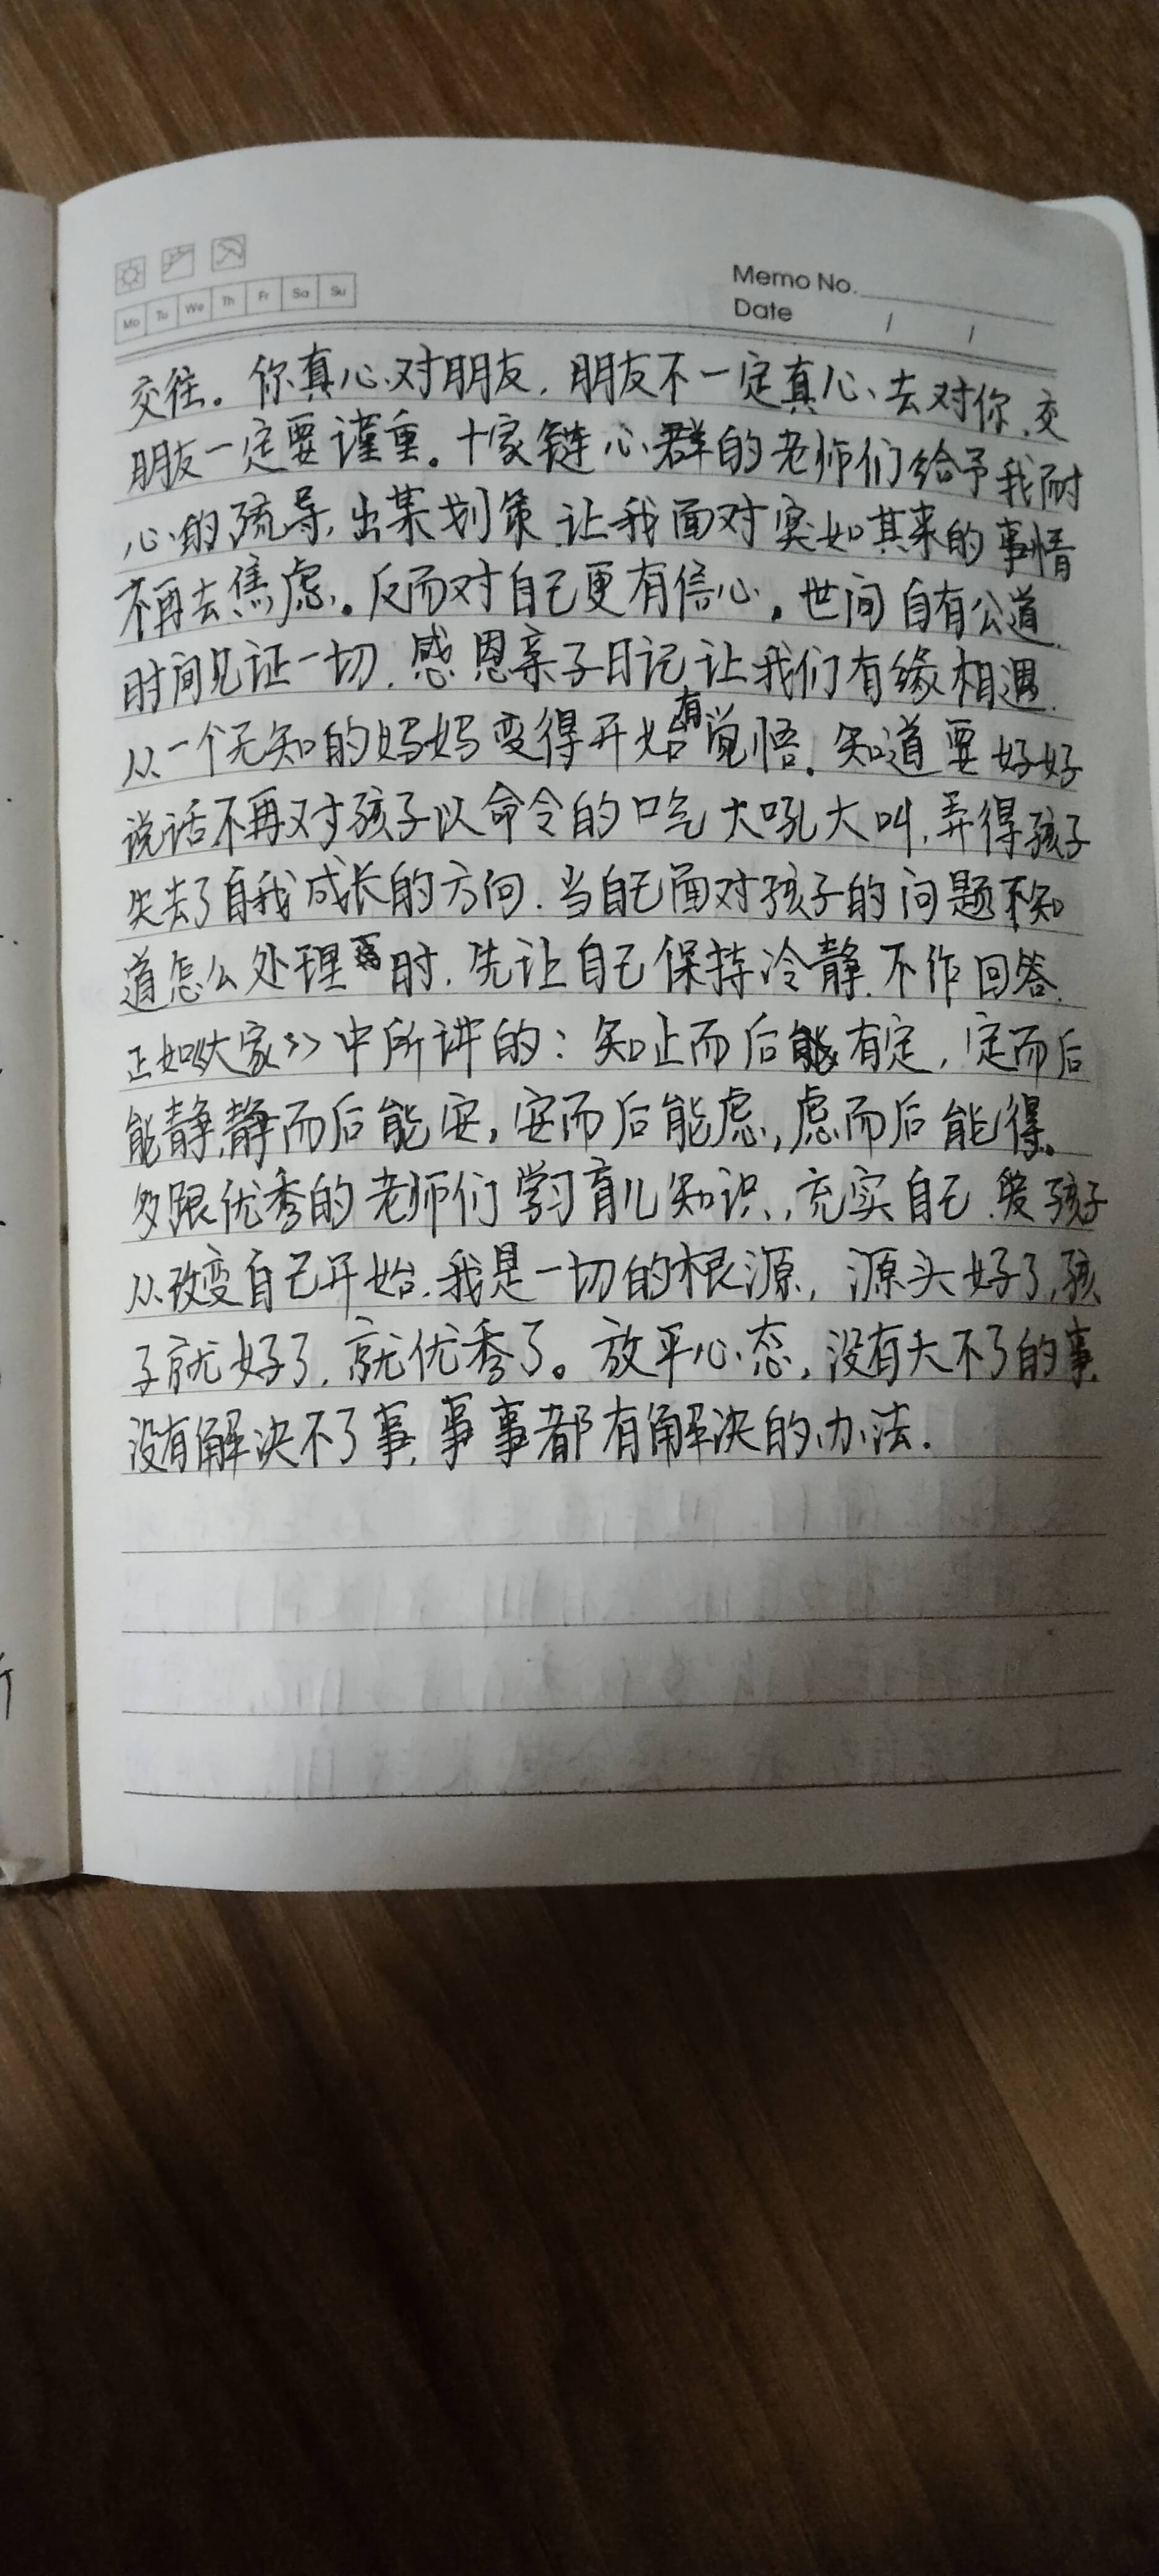 Mo Tu We Th Fr Sa Su
Memo No.
Date / /
交往。你真心对朋友,朋友不一定真心去对你.交
朋友一定要谨重。十家链心群的老师们给予我耐
心的疏导,出某划策.让我面对突如其来的事情
不再去焦虑。反而对自己更有信心。世间自有公道.
时间见证一切.感恩亲子日记让我们有缘相遇.
从一个无知的妈妈变得开始有觉悟.知道要好好
说话不再对孩子以命令的口吃大吼大叫,弄得孩子
失去了自我成长的方向.当自己面对孩子的问题不知
道怎么处理时.先让自己保持冷静.不作回答.
正如《大家》中所讲的:知止而后能有定,定而后
能静,静而后能安,安而后能虑,虑而后能得。
多跟优秀的老师们学习育儿知识,充实自己.爱孩子
从改变自己开始.我是一切的根源,源头好了,孩
子就好了,就优秀了。放平心态,没有大不了的事.
没有解决不了事.事事都有解决的办法.